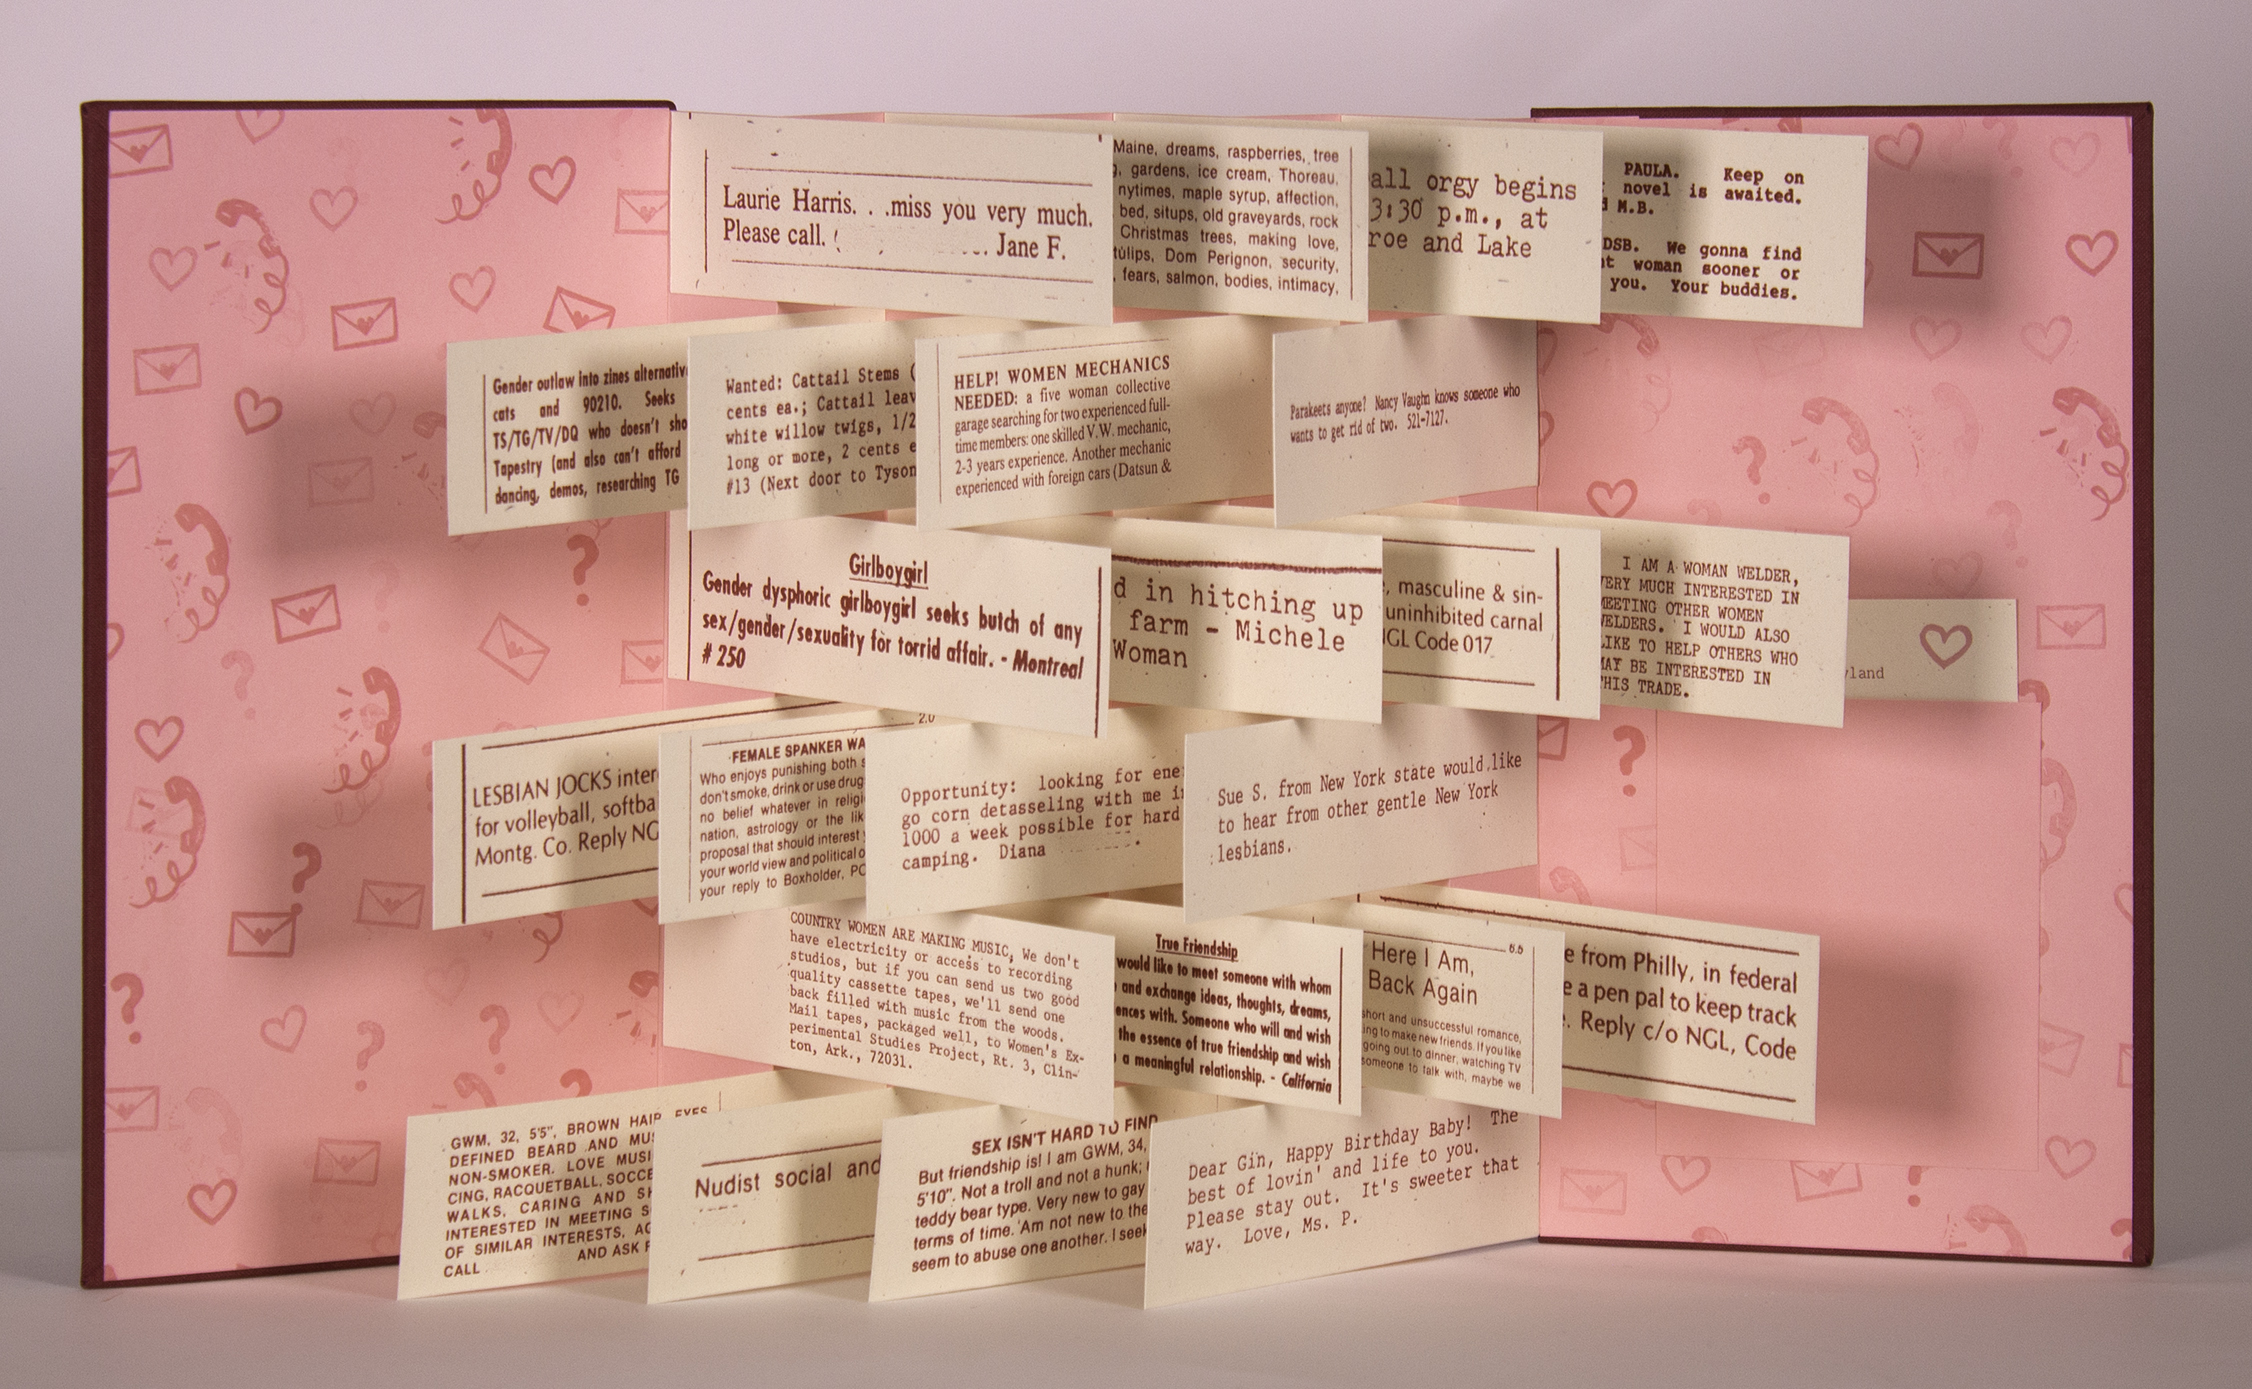 Laurie Harris. . .miss you very much.
Please call. (             Jane F.
Maine, dreams, raspberries, tree
, gardens, ice cream, Thoreau,
nytimes, maple syrup, affection,
bed, situps, old graveyards, rock
Christmas trees, making love,
tulips, Dom Perignon, security,
, fears, salmon, bodies, intimacy,
all orgy begins
3:30 p.m., at
roe and Lake
PAULA. Keep on
novel is awaited.
M.B.
DSB. We gonna find
woman sooner or
you. Your buddies.
Gender outlaw into zines alternativ
cats and 90210. Seeks
TS/TG/TV/DQ who doesn't sho
Tapestry (and also can't afford
dancing, demos, researching TG
Wanted: Cattail Stems (
cents ea.; Cattail leav
white willow twigs, 1/2
long or more, 2 cents e
#13 (Next door to Tyson
HELP! WOMEN MECHANICS
NEEDED: a five woman collective
garage searching for two experienced full-
time members: one skilled V.W. mechanic,
2-3 years experience. Another mechanic
experienced with foreign cars (Datsun &
Parakeets anyone? Nancy Vaughn knows someone who
wants to get rid of two. 521-7127.
Girlboygirl
Gender dysphoric girlboygirl seeks butch of any
sex/gender/sexuality for torrid affair. - Montreal
# 250
d in hitching up
farm - Michele
Woman
, masculine & sin-
uninhibited carnal
NGL Code 017
I AM A WOMAN WELDER,
VERY MUCH INTERESTED IN
MEETING OTHER WOMEN
WELDERS. I WOULD ALSO
LIKE TO HELP OTHERS WHO
MAY BE INTERESTED IN
THIS TRADE.
yland
LESBIAN JOCKS inter
for volleyball, softba
Montg. Co. Reply NG
2.0
FEMALE SPANKER WA
Who enjoys punishing both s
don't smoke, drink or use drug
no belief whatever in religi
nation, astrology or the lik
proposal that should interest
your world view and political o
your reply to Boxholder, PO
Opportunity: looking for ene
go corn detasseling with me i
1000 a week possible for hard
camping. Diana
Sue S. from New York state would like
to hear from other gentle New York
lesbians.
COUNTRY WOMEN ARE MAKING MUSIC, We don't
have electricity or access to recording
studios, but if you can send us two good
quality cassette tapes, we'll send one
back filled with music from the woods.
Mail tapes, packaged well, to Women's Ex-
perimental Studies Project, Rt. 3, Clin-
ton, Ark., 72031.
True Friendship
would like to meet someone with whom
and exchange ideas, thoughts, dreams,
ences with. Someone who will and wish
the essence of true friendship and wish
a meaningful relationship. - California
6.6
Here I Am,
Back Again
short and unsuccessful romance,
ing to make new friends. If you like
going out to dinner, watching TV
someone to talk with, maybe we
e from Philly, in federal
e a pen pal to keep track
. Reply c/o NGL, Code
GWM, 32, 5'5", BROWN HAIR, EYES
DEFINED BEARD AND MU
NON-SMOKER. LOVE MUSI
CING, RACQUETBALL, SOCCE
WALKS. CARING AND S
INTERESTED IN MEETING S
OF SIMILAR INTERESTS, A
CALL           AND ASK F
Nudist social and
SEX ISN'T HARD TO FIND
But friendship is! I am GWM, 34,
5'10". Not a troll and not a hunk;
teddy bear type. Very new to gay
terms of time. Am not new to the
seem to abuse one another. I seek
Dear Gin, Happy Birthday Baby! The
best of lovin' and life to you.
Please stay out. It's sweeter that
way. Love, Ms. P.